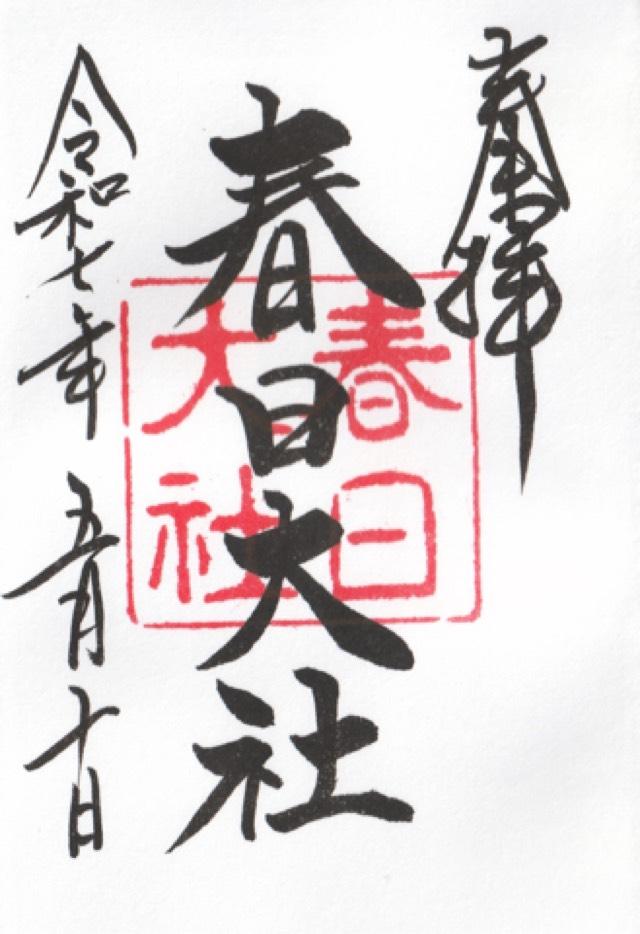 奉拝
春日大社
春日大社
令和七年五月十日